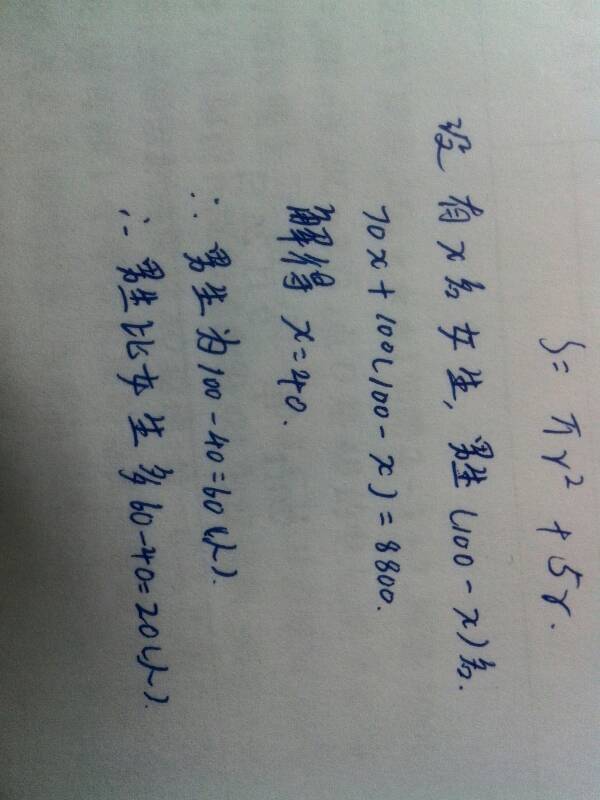 S = πr² + 5r.
设有x名女生,男生(100-x)名.
70x+100(100-x)=8800.
解得 x=40.
∴ 男生为100-40=60(人).
∴ 男生比女生多60-40=20(人).